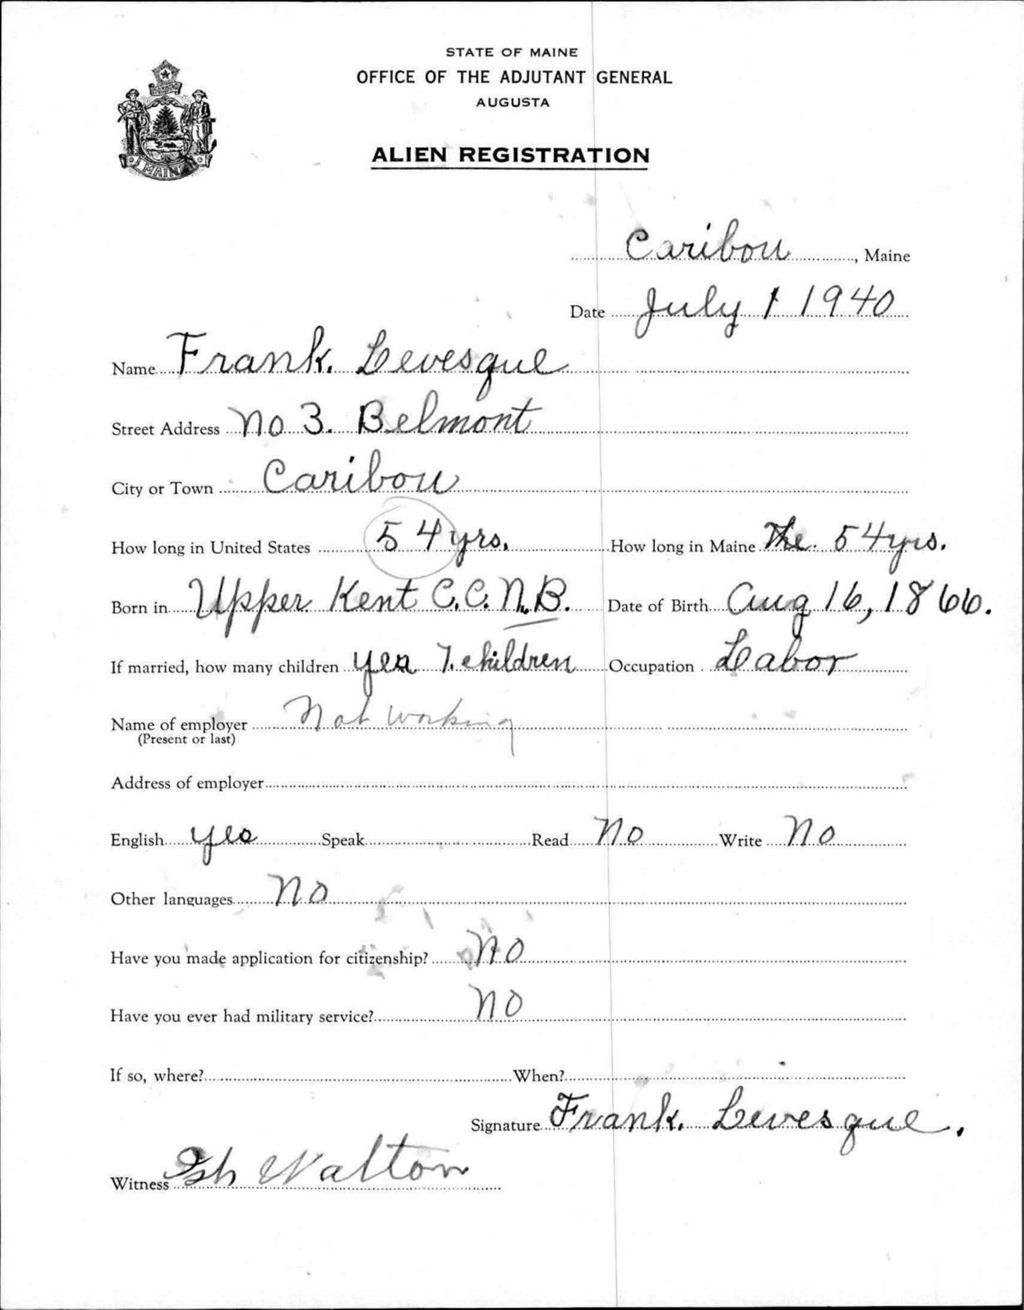 STATE OF MAINE
OFFICE OF THE ADJUTANT GENERAL
AUGUSTA
ALIEN REGISTRATION
MAINE
Caribou, Maine
Date July 1 1940
Name Frank. Levesque
Street Address No 3. Belmont
City or Town Caribou
How long in United States 54 yrs. How long in Maine The 54 yrs.
Born in Upper Kent C.C. N.B. Date of Birth Aug 16, 1866.
If married, how many children yes 7. children Occupation Labor
Name of employer Not working
(Present or last)
Address of employer
English yes Speak Read No Write No
Other languages No
Have you made application for citizenship? No
Have you ever had military service? No
If so, where? When?
Signature Frank. Levesque.
Witness Walton